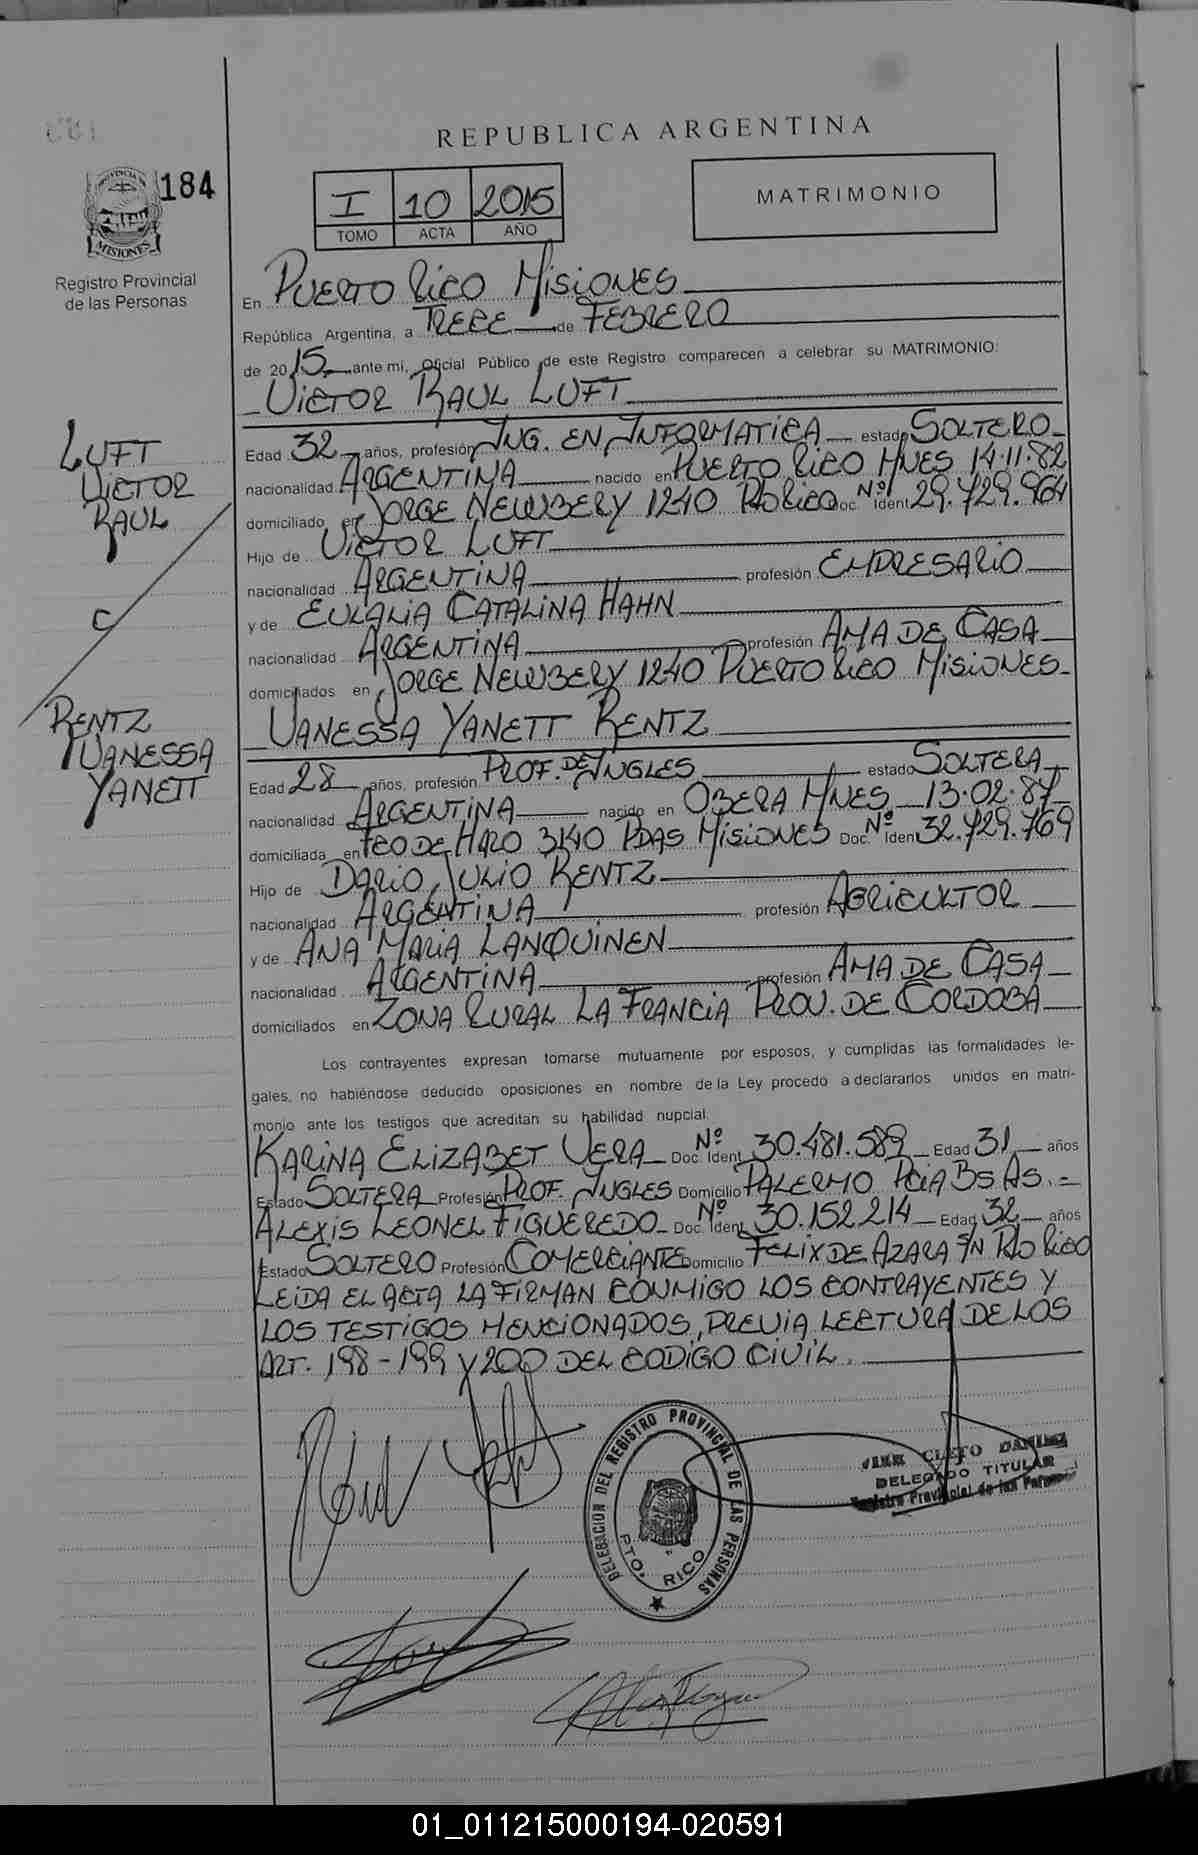 REPUBLICA ARGENTINA
184
PROVINCIA DE
MISIONES
Registro Provincial
de las Personas
I 10 2015
TOMO ACTA AÑO
MATRIMONIO
En PUERTO RICO MISIONES
República Argentina, a TRECE de FEBRERO
de 2015 ante mi, Oficial Público de este Registro comparecen a celebrar su MATRIMONIO:
VICTOR RAUL LUFT
LUFT
VICTOR
RAUL
C/
RENTZ
VANESSA
YANETT
Edad 32 años, profesión ING. EN INFORMATICA estado SOLTERO
nacionalidad ARGENTINA nacido en PUERTO RICO MNES 14.11.82
domiciliado en JORGE NEWBERY 1240 PTO RICO Doc. Nº Ident 29.729.964
Hijo de VICTOR LUFT
nacionalidad ARGENTINA profesión EMPRESARIO
y de EULALIA CATALINA HAHN
nacionalidad ARGENTINA profesión AMA DE CASA
domiciliados en JORGE NEWBERY 1240 PUERTO RICO MISIONES
VANESSA YANETT RENTZ
Edad 28 años, profesión PROF. DE INGLES estado SOLTERA
nacionalidad ARGENTINA nacido en OBERA MNES 13.02.87
domiciliada en TEO DE HARO 3140 PDAS MISIONES Doc. Nº Iden 32.729.769
Hijo de DARIO JULIO RENTZ
nacionalidad ARGENTINA profesión AGRICULTOR
y de ANA MARIA LANQUINEN
nacionalidad ARGENTINA profesión AMA DE CASA
domiciliados en ZONA RURAL LA FRANCIA PROV. DE CORDOBA
Los contrayentes expresan tomarse mutuamente por esposos, y cumplidas las formalidades le-
gales, no habiéndose deducido oposiciones en nombre de la Ley procedo a declararlos unidos en matri-
monio ante los testigos que acreditan su habilidad nupcial:
KARINA ELIZABET VERA Doc. Nº Ident 30.481.589 Edad 31 años
Estado SOLTERA Profesión PROF. INGLES Domicilio PALERMO PCIA BS AS.=
ALEXIS LEONEL FIGUEREDO Doc. Nº Ident 30.152.214 Edad 32 años
Estado SOLTERO Profesión COMERCIANTE Domicilio FELIX DE AZARA S/N PTO RICO
LEIDA EL ACTA LA FIRMAN CONMIGO LOS CONTRAYENTES Y
LOS TESTIGOS MENCIONADOS, PREVIA LECTURA DE LOS
ART. 198-199 Y 200 DEL CODIGO CIVIL.
DELEGACION DEL REGISTRO PROVINCIAL DE LAS PERSONAS
PTO. RICO
CLETO
DELEGADO TITULAR
Registro Provincial de las Personas
01_011215000194-020591